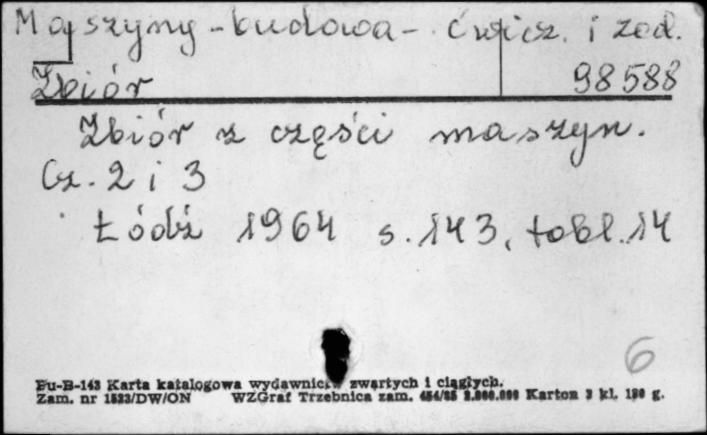 Maszyny - budowa - ćwicz. i zad.
Zbiór 98588
Zbiór z części maszyn.
Cz. 2 i 3
Łódź 1964 s. 143, tabl. 14
6
Pu-B-143 Karta katalogowa wydawnictw zwartych i ciągłych.
Zam. nr 1523/DW/ON WZGraf Trzebnica zam. Karton 3 kl. g.